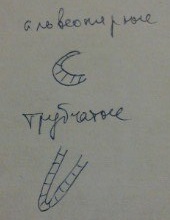 альвеолярные
трубчатые